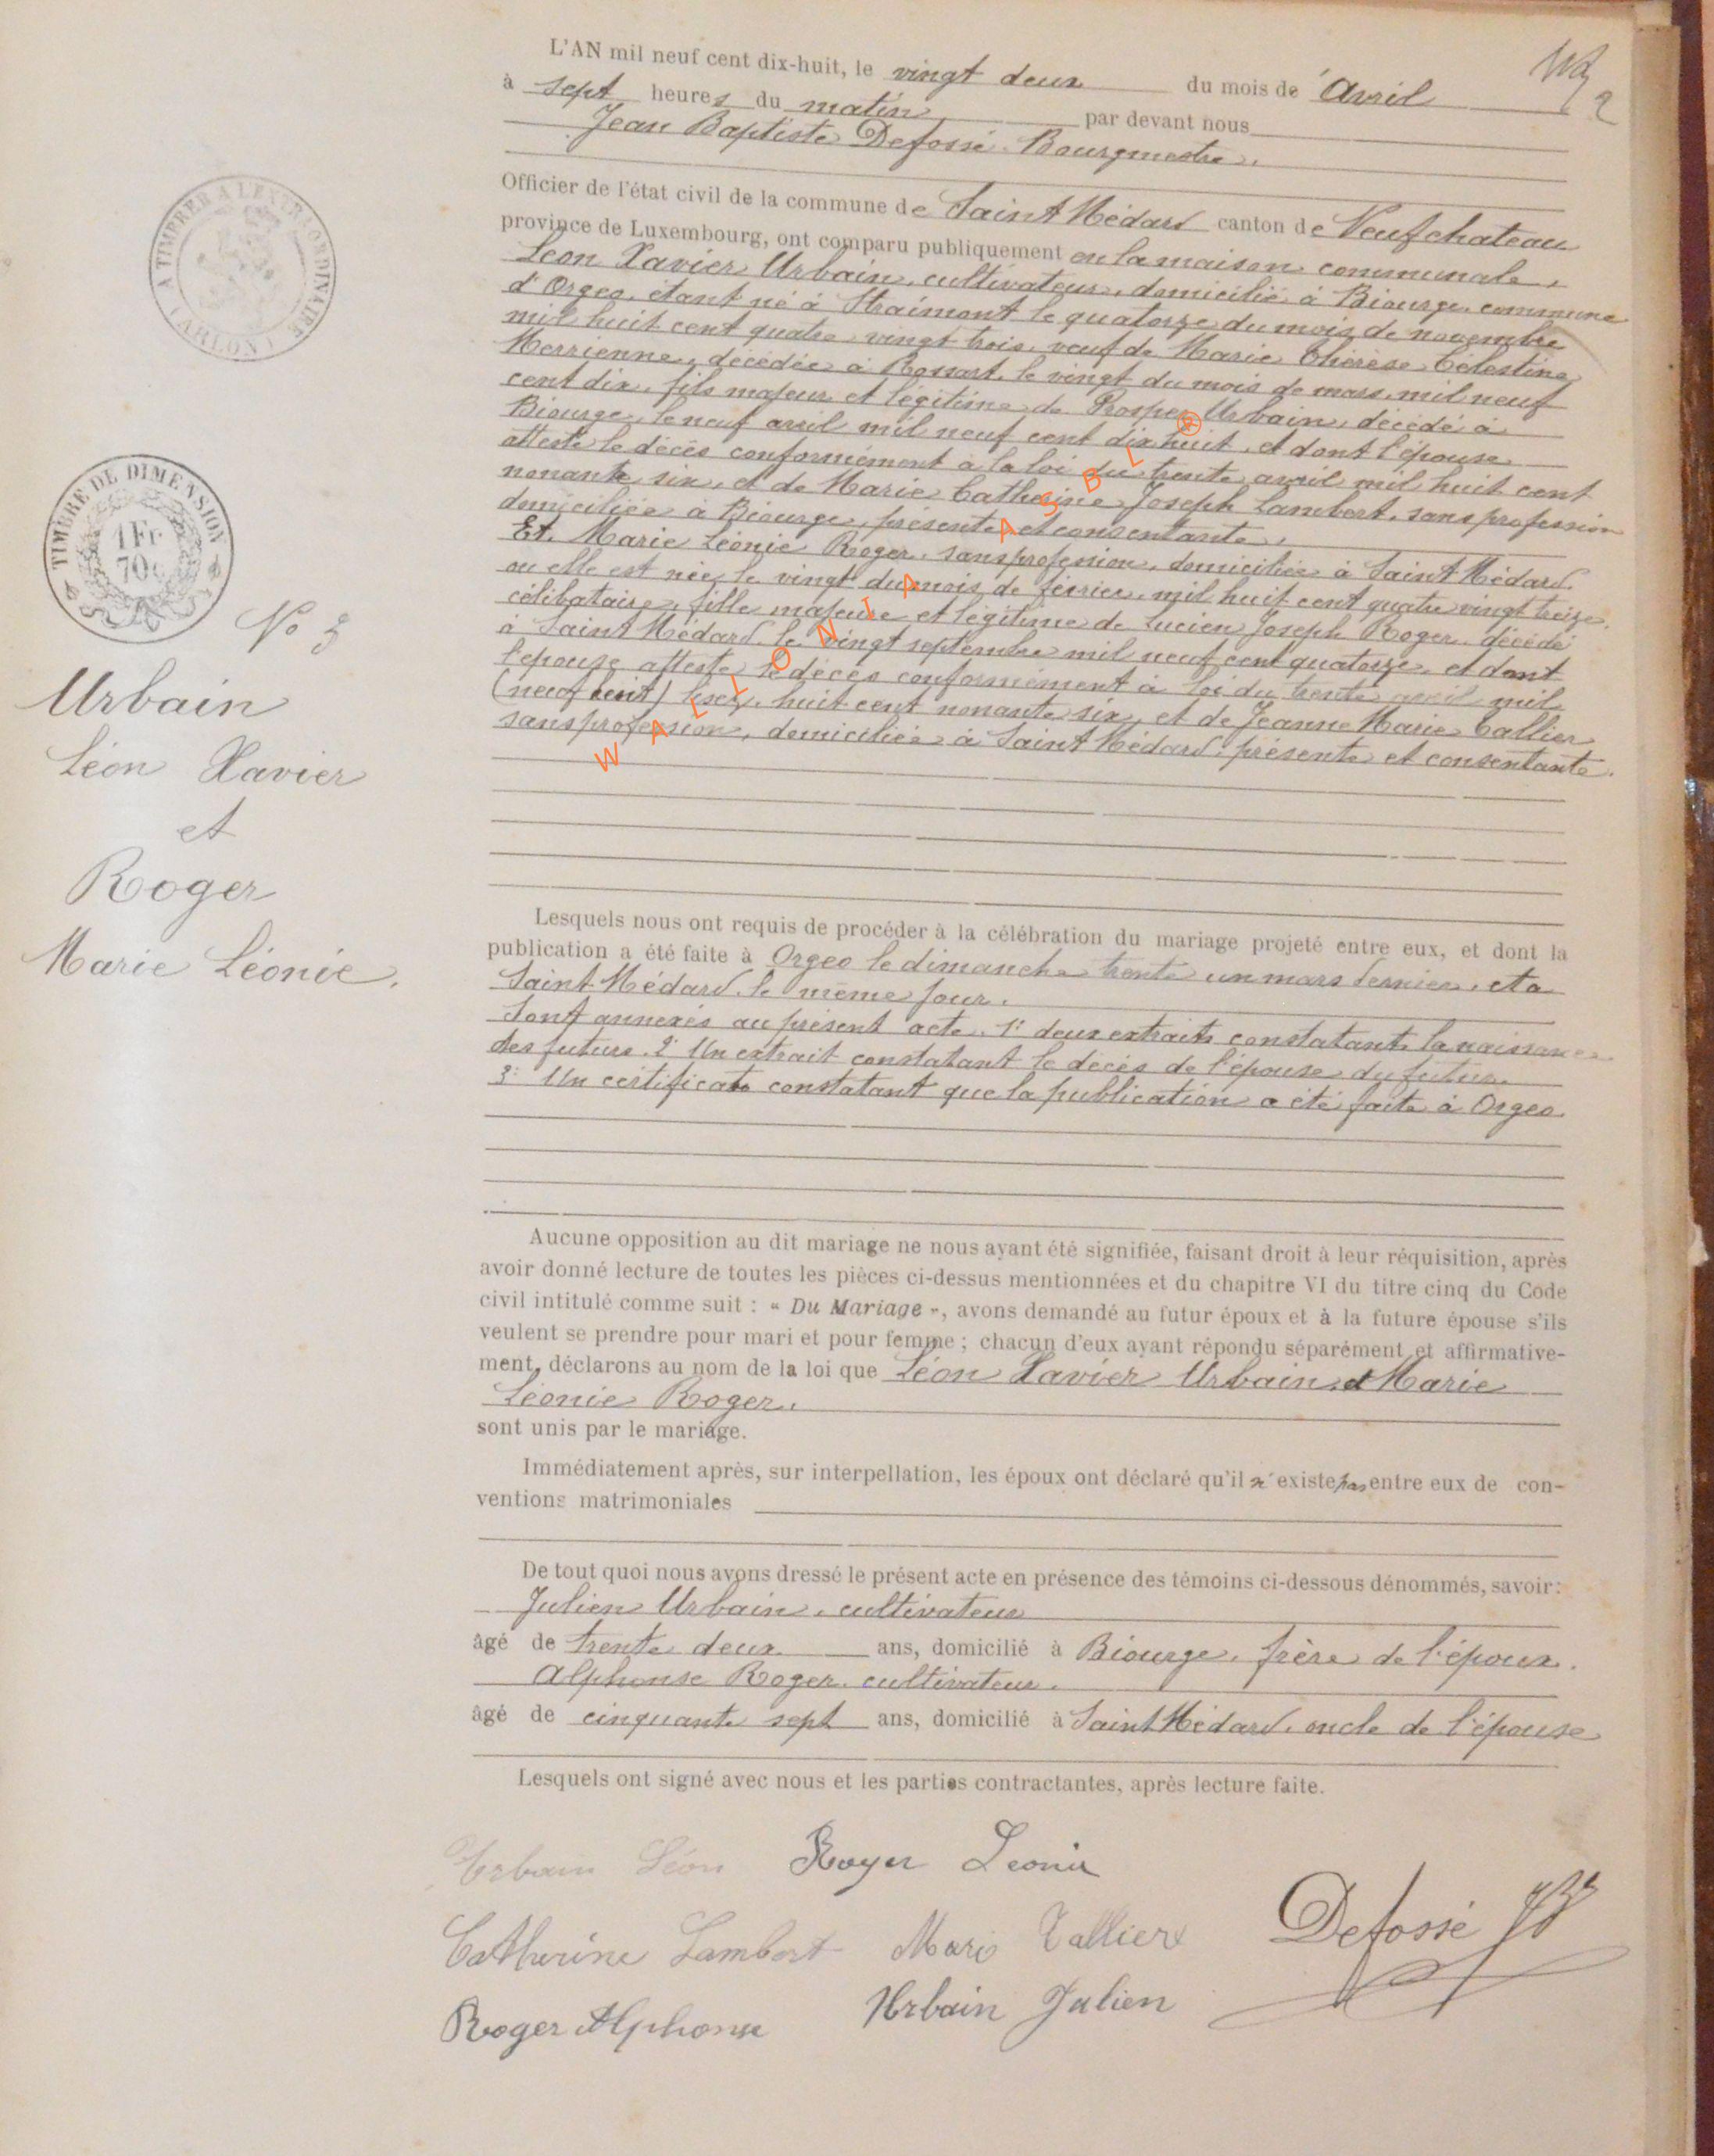 L'AN mil neuf cent dix-huit, le vingt deux du mois de Avril
à sept heures du matin par devant nous
Jean Baptiste Defossé Bourgmestre.
Officier de l'état civil de la commune de Saint Médard canton de Neufchateau
province de Luxembourg, ont comparu publiquement en la maison communale,
Léon Xavier Urbain, cultivateur, domicilié à Biourge, commune
d'Orgeo, étant né à Straimont le quatorze du mois de novembre
mil huit cent quatre vingt trois, veuf de Marie Thérèse Célestine
Merrienne, décédée à Rossart, le vingt du mois de mars, mil neuf
cent dix, fils majeur et légitime de Prosper Urbain, décédé à
Biourge, le neuf avril mil neuf cent dix huit, et dont l'épouse
atteste le décès conformément à la loi du trente avril mil huit cent
nonante six, et de Marie Catherine Joseph Lambert, sans profession
domiciliée à Biourge, présente et consentante.
Et. Marie Léonie Roger, sans profession, domiciliée à Saint Médard
ou elle est née, le vingt du mois de février, mil huit cent quatre vingt treize,
célibataire, fille majeure et légitime de Lucien Joseph Roger, décédé
à Saint Médard le vingt septembre mil neuf cent quatorze, et dont
l'épouse atteste le décès conformément à loi du trente avril mil
(neuf cent) lisez, huit cent nonante six, et de Jeanne Marie Tallier
sans profession, domiciliée à Saint Médard, présente et consentante.
WALLONIA ASBL ®
A TIMBRER A L'EXTRAORDINAIRE
( ARLON )
TIMBRE DE DIMENSION
1 Fr
70c
No 3
Urbain
Léon Xavier
et
Roger
Marie Léonie.
Lesquels nous ont requis de procéder à la célébration du mariage projeté entre eux, et dont la
publication a été faite à Orgeo le dimanche trente un mars dernier, et a
Saint Médard, le même jour.
Sont annexés au présent acte. 1° deux extraits constatant la naissance
des futurs. 2° Un extrait constatant le décès de l'épouse du futur.
3° Un certificat constatant que la publication a été faite à Orgeo.
Aucune opposition au dit mariage ne nous ayant été signifiée, faisant droit à leur réquisition, après
avoir donné lecture de toutes les pièces ci-dessus mentionnées et du chapitre VI du titre cinq du Code
civil intitulé comme suit : « Du Mariage », avons demandé au futur époux et à la future épouse s'ils
veulent se prendre pour mari et pour femme ; chacun d'eux ayant répondu séparément et affirmative-
ment, déclarons au nom de la loi que Léon Xavier Urbain et Marie
Léonie Roger.
sont unis par le mariage.
Immédiatement après, sur interpellation, les époux ont déclaré qu'il n'existe pas entre eux de con-
ventions matrimoniales
De tout quoi nous avons dressé le présent acte en présence des témoins ci-dessous dénommés, savoir :
Julien Urbain, cultivateur
âgé de trente deux ans, domicilié à Biourge, frère de l'époux.
Alphonse Roger, cultivateur.
âgé de cinquante sept ans, domicilié à Saint Médard, oncle de l'épouse
Lesquels ont signé avec nous et les parties contractantes, après lecture faite.
Urbain Léon Roger Leonie
Catherine Lambert Marie Tallier Defossé JB
Roger Alphonse Urbain Julien